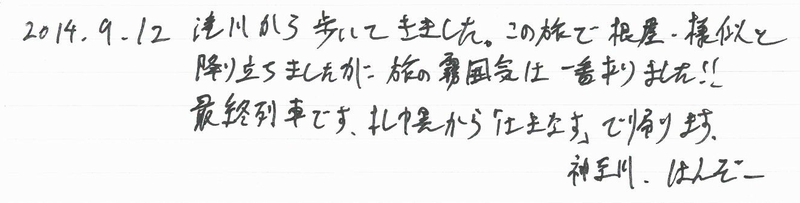 2014.9.12 滝川から歩いてきました。この旅で根室・様似と
降り立ちましたが 旅の雰囲気は一番ありました!!
最終列車です、札幌から「はまなす」で帰ります。
神奈川、はんぞー